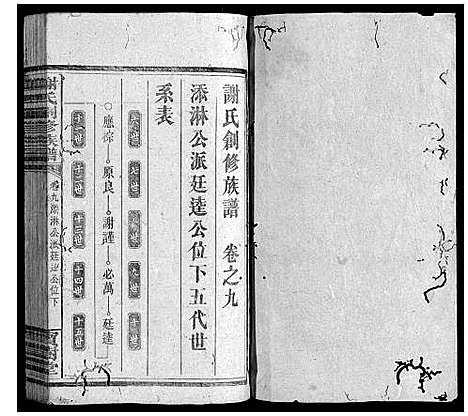 謝氏創修族譜 卷之九
添淋公派廷逵公位下五代世
系表
六世 七世 八世 九世 十世
應保 原良 謝謹 必萬 廷逵
十一世 十二世 十三世 十四世 十五世
謝氏創修族譜 卷九添淋公派廷逵公位下 寶樹堂